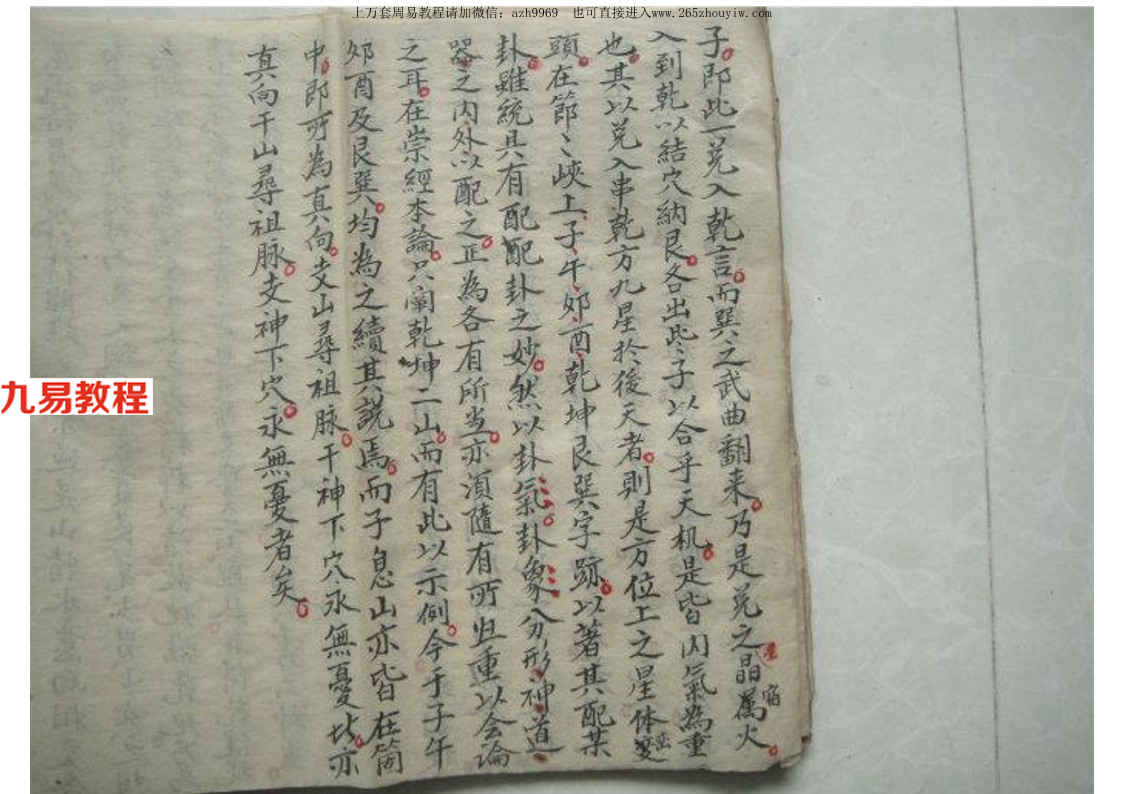 上万套周易教程请加微信：azh9969 也可直接进入www.265zhouyiw.com
九易教程
子。即此一兑入乾言。而巽之武曲翻来。乃是兑之晶属火。
星 宿
入到乾以结穴納艮。各出此子以合乎天机。是皆内氣為重
也。其以兑入串乾方九星於後天者。則是方位上之星体变
頭。在節々峽上、子、午、夘、酉、乾坤艮巽字跡。以著其配某
卦。雖統具有配配卦之妙。然以卦氣。卦象分形、神道、
器之内外以配之。正為各有所当。亦須隨有所重以会論
之耳。在崇經本論。只闡乾坤二山。而有此以示例。今于子午
夘酉及艮巽。均為之續其説焉。而子息山亦皆在箇
中。即所為真向。支山尋祖脉。干神下穴永無憂。此亦
真向干山尋祖脉。支神下穴。永無憂者矣。